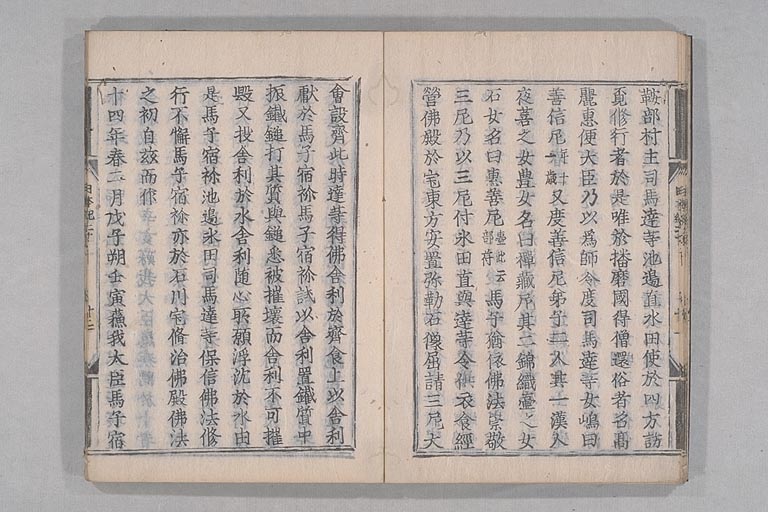 鞍部村主司馬達等池邊直氷田使於四方訪
覓修行者於是唯於播磨國得僧還俗者名高
麗惠便大臣乃以爲師令度司馬達等女嶋曰
善信尼年十一歳又度善信尼弟子二人其一漢人
夜善之女豊女名曰禪藏尼其二錦織壷之女
石女名曰惠善尼壷此云都符馬子獨依佛法崇敬
三尼乃以三尼付氷田直與達等令供衣食經
營佛殿於宅東方安置弥勒石像屈請三尼大
會設齊此時達等得佛舍利於齊食上以舍利
獻於馬子宿祢馬子宿祢試以舍利置鐵質中
振鐵鎚打其質與鎚悉被摧壞而舍利不可摧
毀又投舍利於水舍利随心所願浮沈於水由
是馬子宿祢池邊氷田司馬達等保信佛法修
行不懈馬子宿祢亦於石川宅脩治佛殿佛法
之初自兹而作
十四年春二月戊子朔壬寅蘓我大臣馬子宿